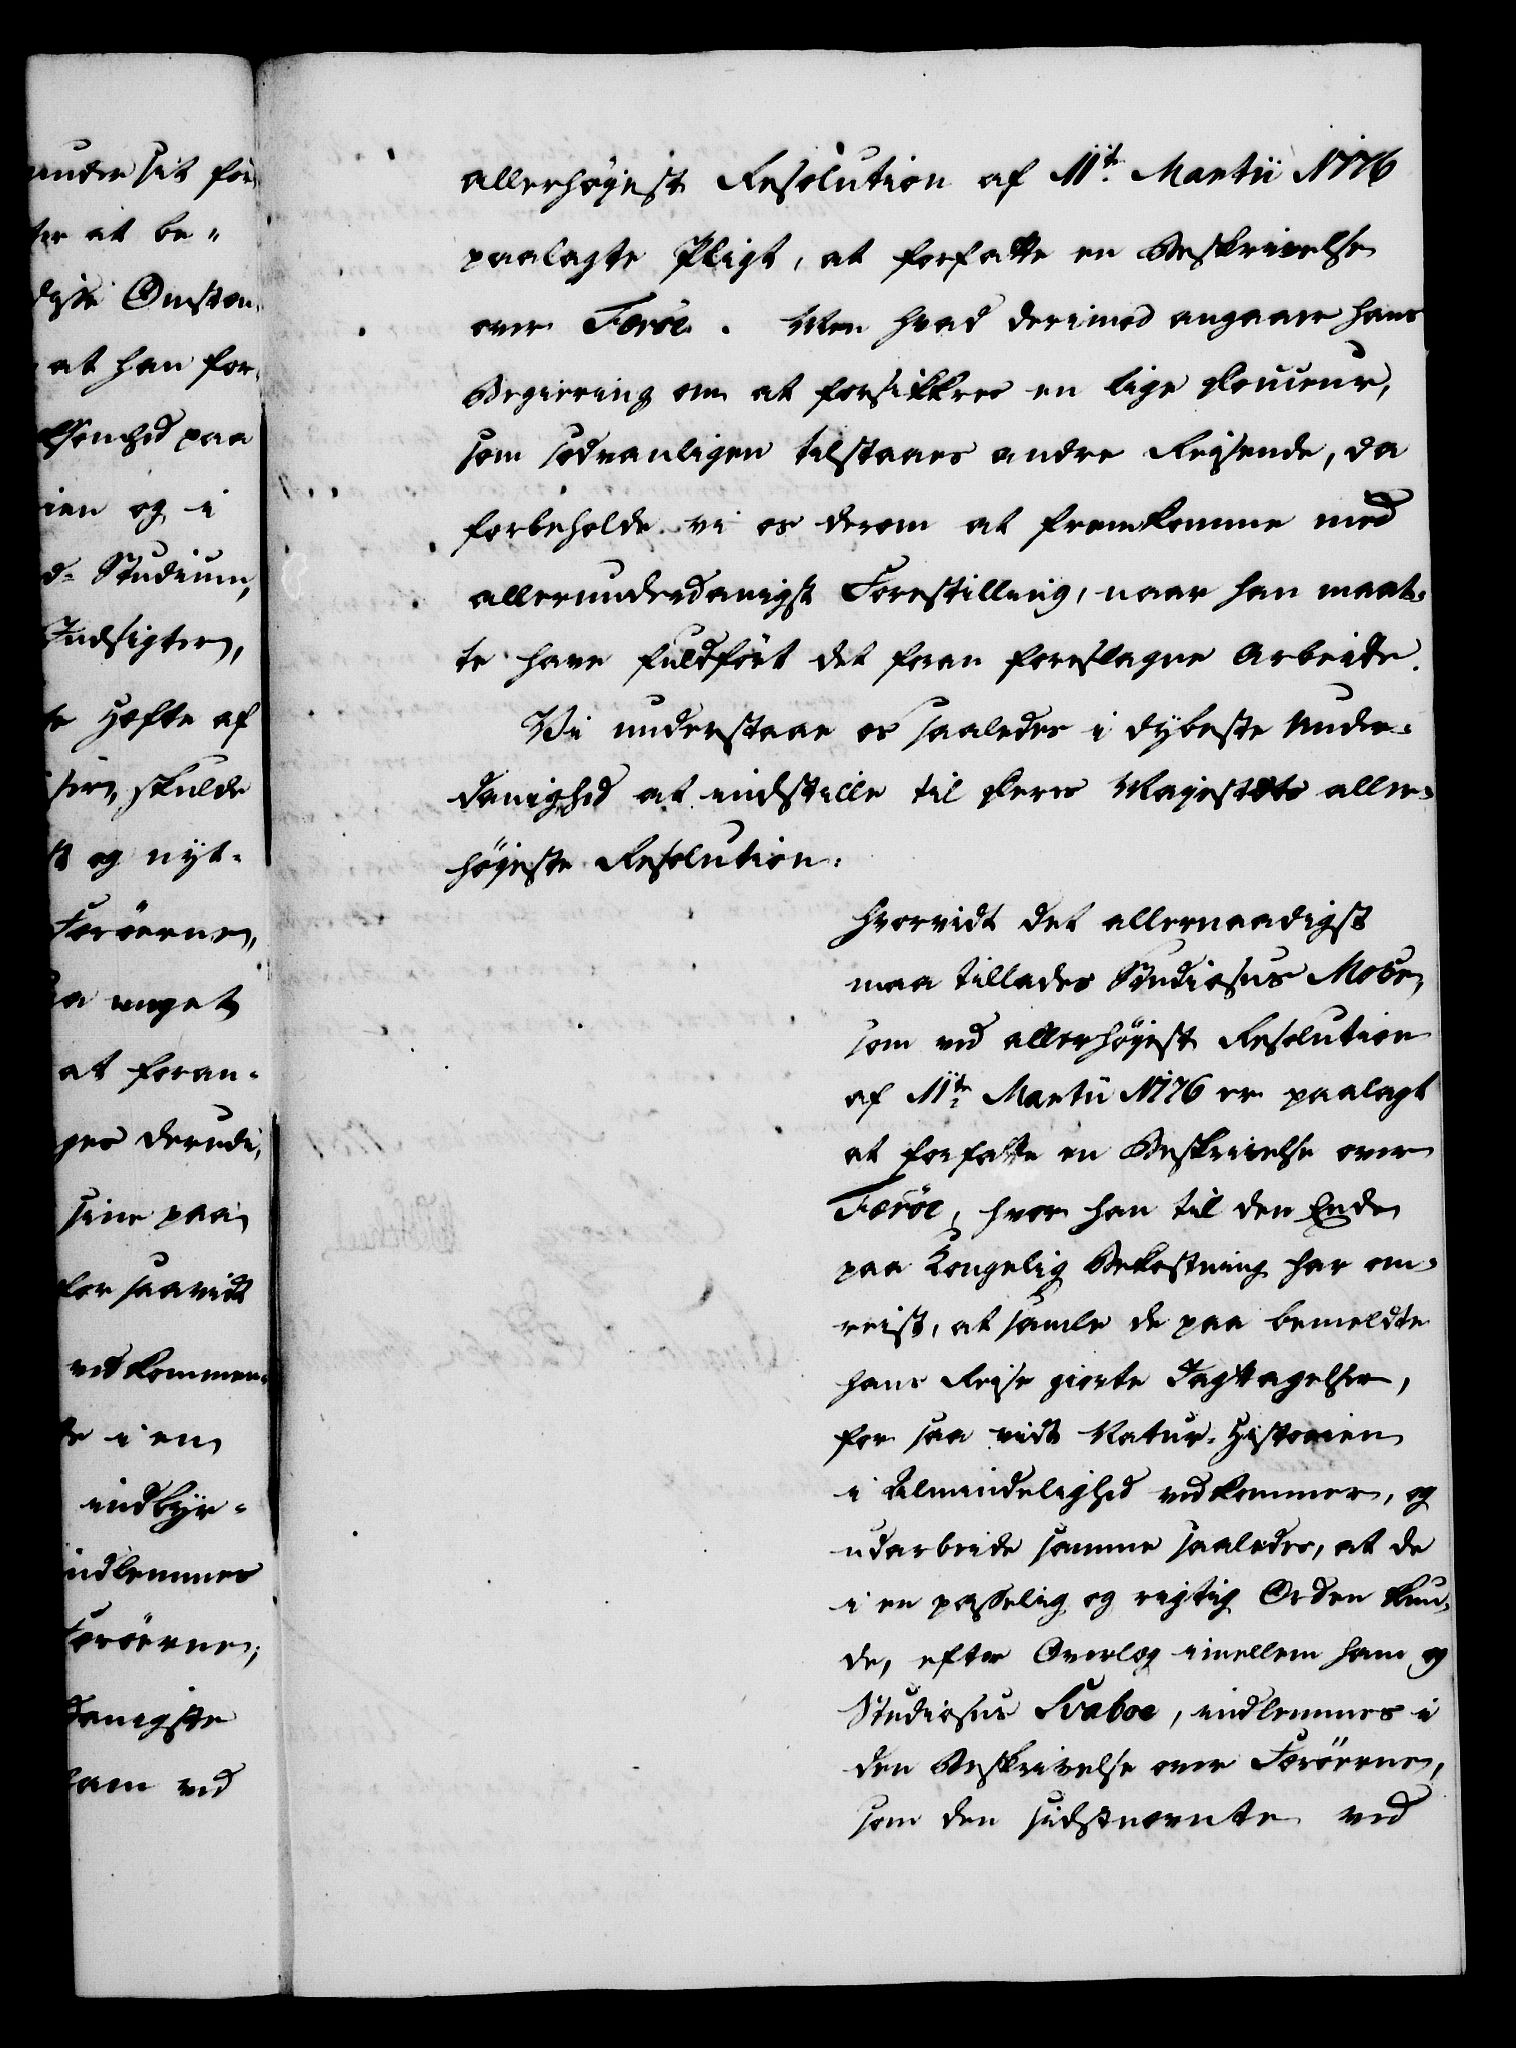 under sit for
ter at be„
disse Omstæn„
at han for„
somhed paa
ien og i
d= Studium,
Indsigter,
te Hefte af
sine, skulde
st og nyt-
Færøerne,
a meget
at foran-
ges derudi,
sine paa
for saavidt
vedkommen-
te i en
indbyr-
indlemmes
Færøerne;
danigste
ham ved
allerhøyest Resolution af 11te Martii 1776
paalagte Pligt, at forfatte en Beskrivelse
over Færöe. Men hvad derimod angaaer hans
Begiering om at forsikkres en lige Douceur,
som sædvanligen tilstaaes andre Reysende, da
forbeholde vi os derom at fremkomme med
allerunderdanigst Forestilling, naar han maat-
te have fuldført det ham foreslagne Arbeide.
Vi understaae os saaledes i dybeste Under-
danighed at indstille til Deres Majestæts aller-
høyeste Resolution:
Hvorvidt det allernaadigst
maa tillades Studiosus Mohr,
som ved allerhøyest Resolution
af 11te Martii 1776 er paalagt
at forfatte en Beskrivelse over
Færöe, hvor han til den Ende
paa Kongelig Bekostning har om-
reist, at samle de paa bemeldte
hans Reise giorte Iagttagelser,
for saa vidt Natur-Historien
i Almindelighed vedkommer, og
udarbeide samme saaledes, at de
i en passelig og rigtig Orden kun-
de, efter Overlæg imellem ham og
Studiosus Svaboe, indlemmes i
den Beskrivelse over Færöerne,
som den sidstnævnte ved